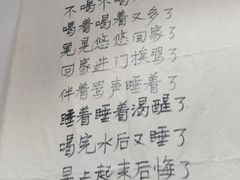 不喝不喝又喝了
喝着喝着又多了
晃晃悠悠回家了
回家进门挨骂了
伴着骂声睡着了
睡着睡着渴醒了
喝完水后又睡了
早上起来后悔了